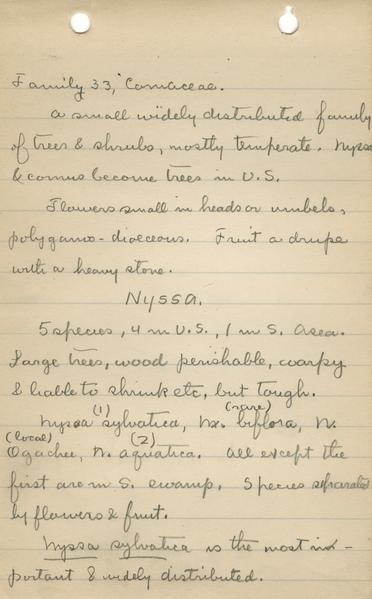 Family 33, Cornaceae.
A small widely distributed family
of trees & shrubs, mostly temperate. Nyssa
& cornus become trees in U.S.
Flowers small in heads or umbels,
polygamo-dioeceous. Fruit a drupe
with a heavy stone.
Nyssa.
5 species, 4 in U.S., 1 in S. Asea.
Large trees, wood perishable, warpy
& liable to shrink etc, but tough.
(1) (rare)
Nyssa sylvatica, N. biflora, N.
(local) (2)
Ogachee, N. aquatica. All except the
first are in S. swamp. Species separated
by flowers & fruit.
Nyssa sylvatica is the most im-
portant & widely distributed.